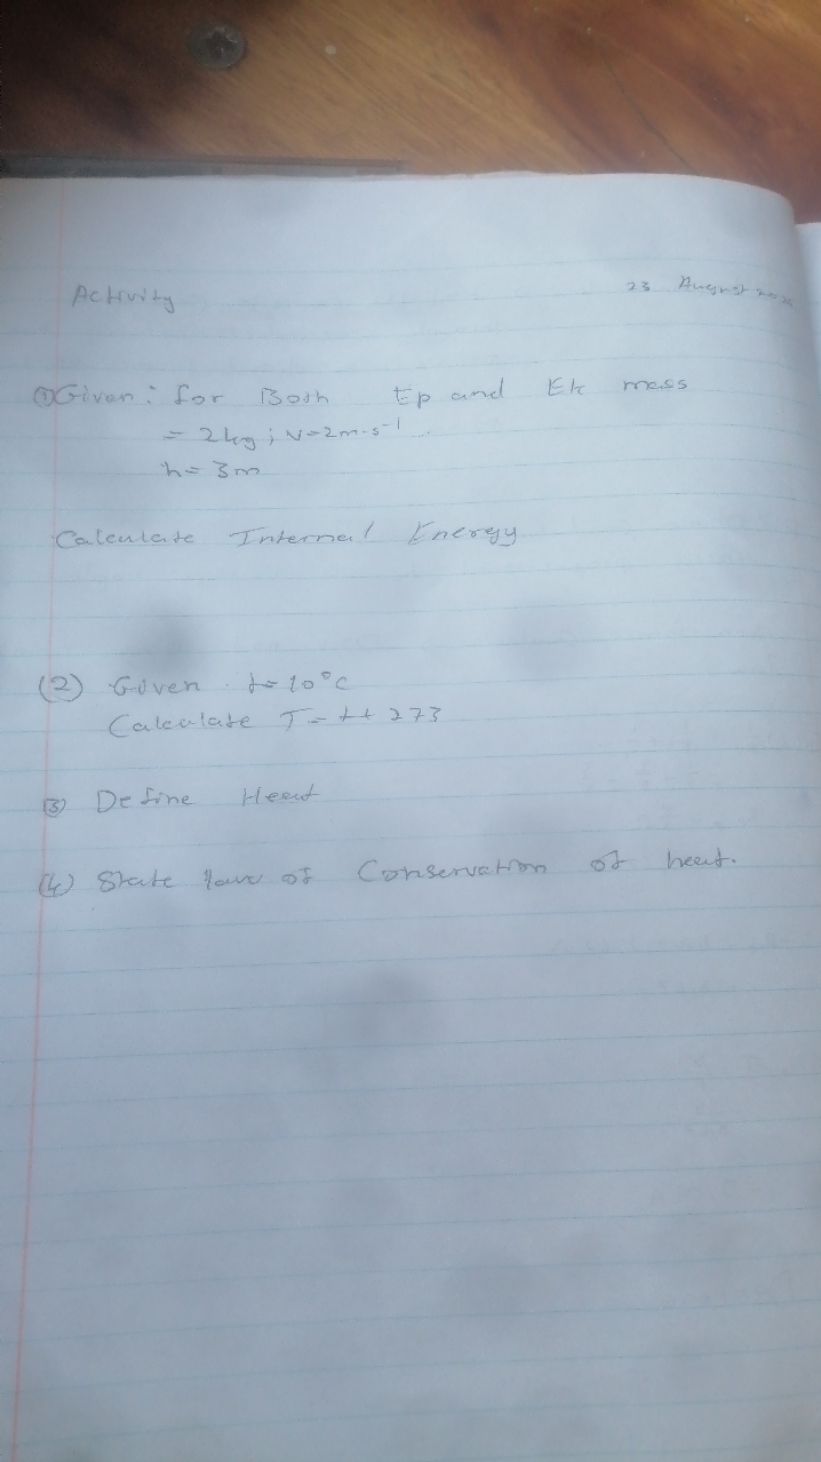 Activity
23 August
① Given: for Both Ep and Ek mass
= 2kg; v=2m.s-1
h= 3m
Calculate Internal Energy
(2) Given t= 10°C
Calculate T= t+ 273
③ Define Heat
(4) State law of Conservation of heat.